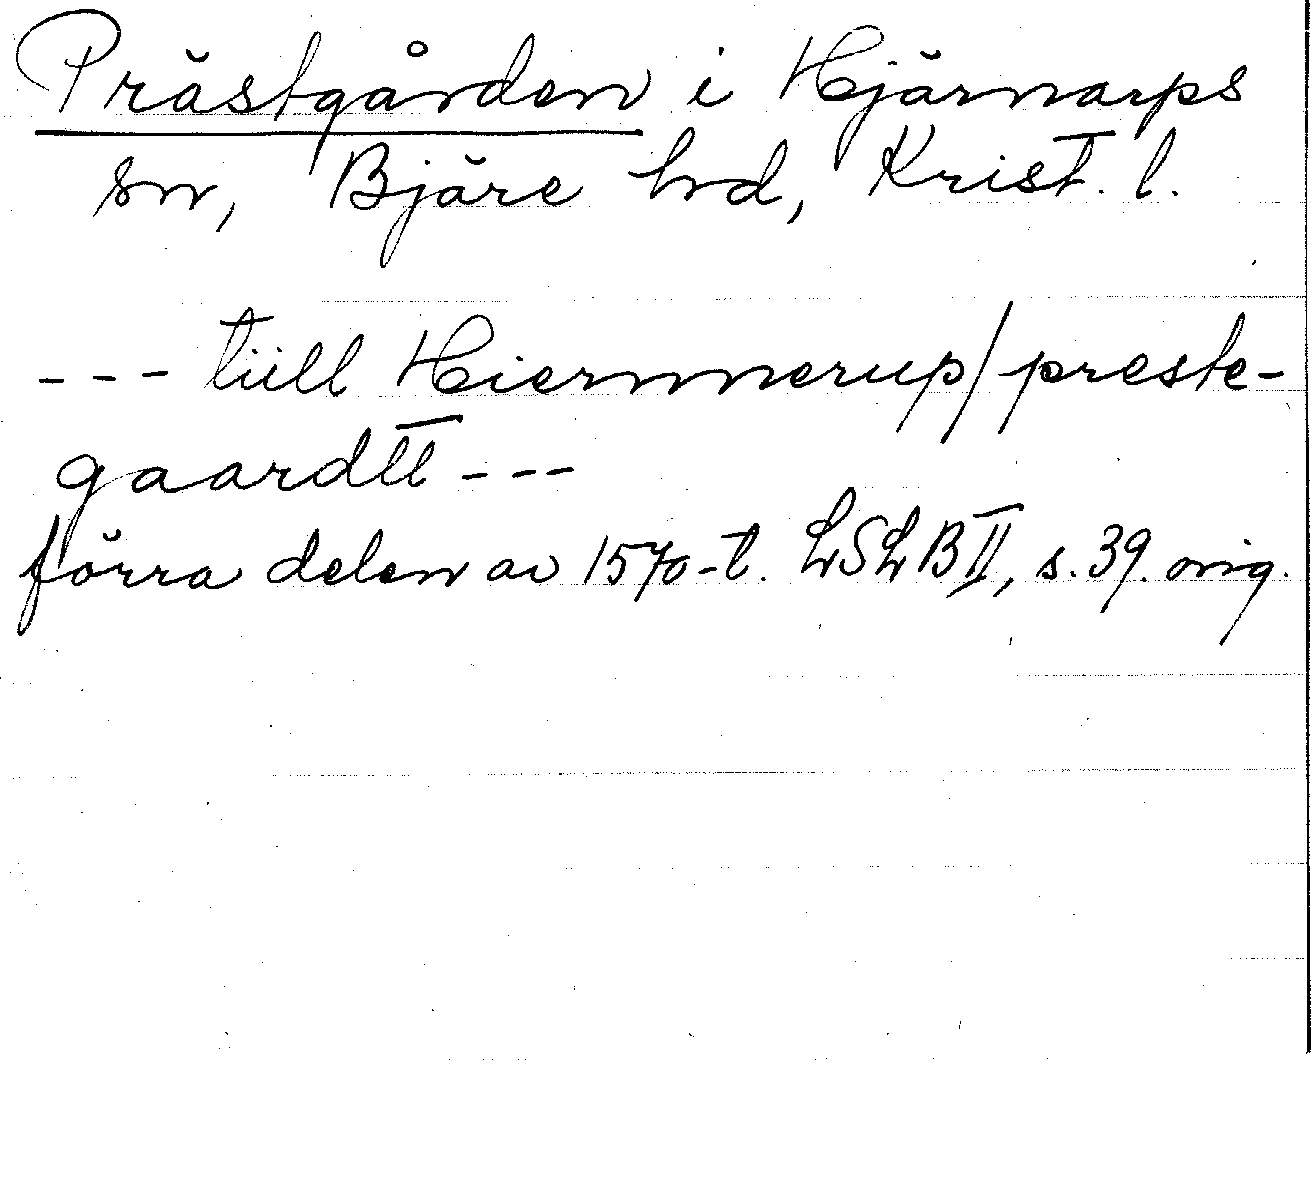 Prästgården i Hjärnarps
sn, Bjäre hd, Krist. l.
--- tiill Hiernnerup/preste-
gaardtt ---
förra delen av 1570-t. LSLB II, s. 39. orig.